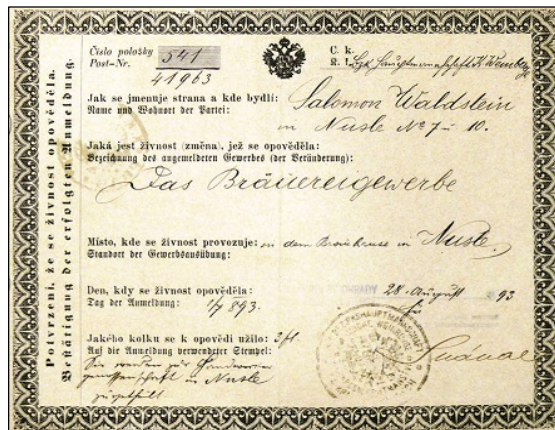 Potvrzení, že se živnost opověděla.
Bestätigung der erfolgten Anmeldung.
Číslo položky
Post-Nr.
541
41963
C. k.
K. k. Bzk Hauptmannschaft K. Weinberge
Jak se jmenuje strana a kde bydlí:
Name und Wohnort der Partei:
Salomon Waldstein
in Nusle No 7 u 10.
Jaká jest živnost (změna), jež se opověděla:
Bezeichnung des angemeldeten Gewerbes (der Veränderung):
Das Bräuereigewerbe
Místo, kde se živnost provozuje: in dem Bräuhause in Nusle.
Standort der Gewerbsausübung:
Den, kdy se živnost opověděla:
Tag der Anmeldung: 893.
28. August 93
Jakého kolku se k opovědi užilo: 3 fl
Auf die Anmeldung verwendeter Stempel:
Sie werden zur
genossenschaft in Nusle
zugetheilt